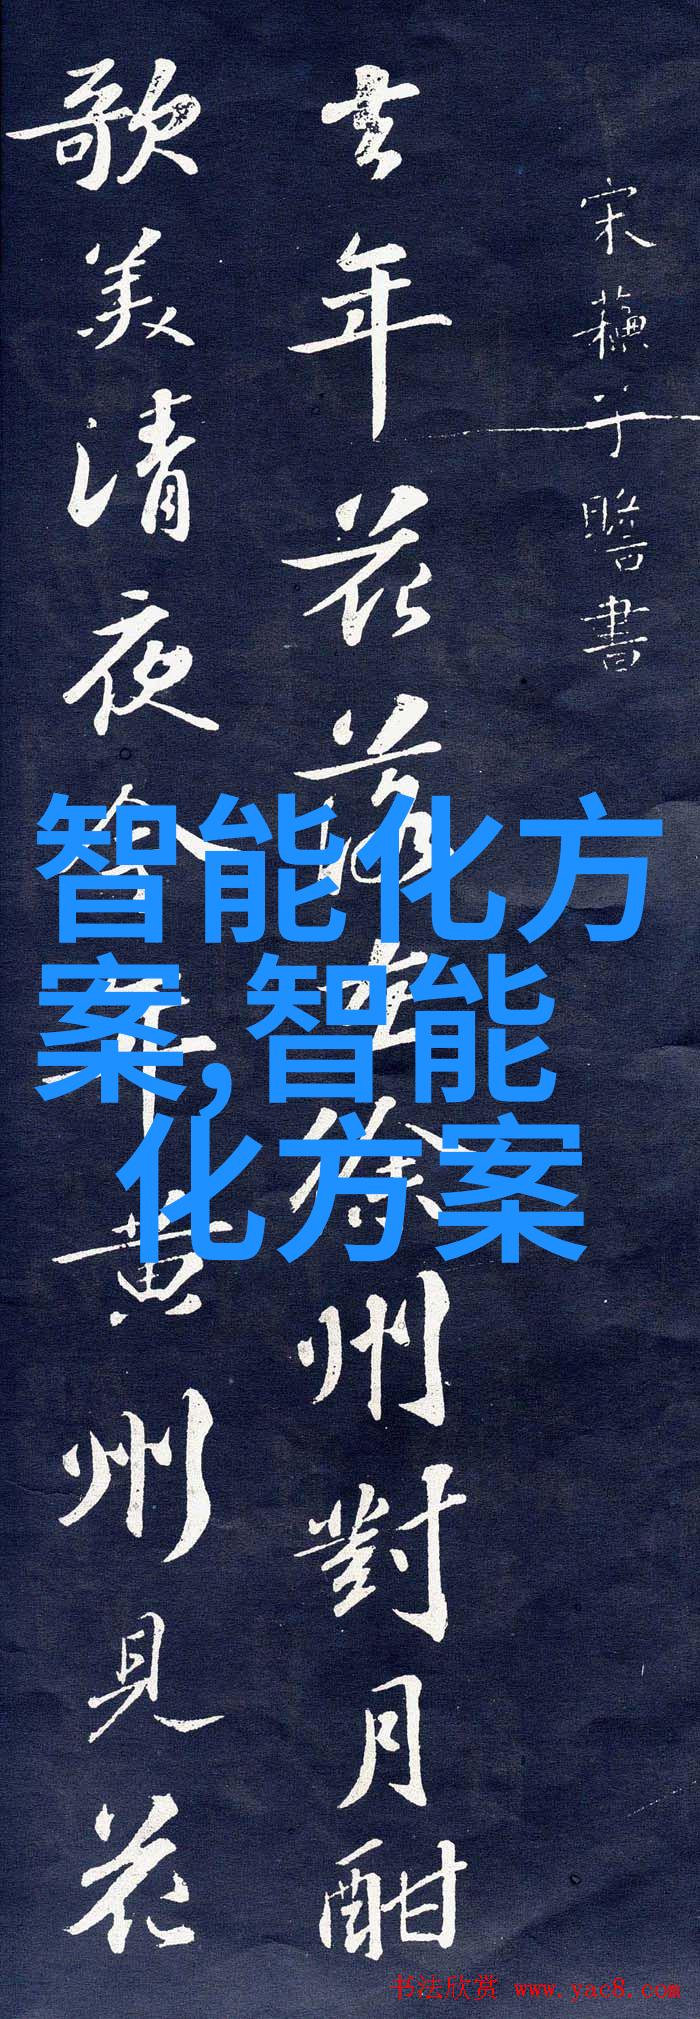 宋蘇子瞻書
去年花落在徐州對月酣
歌美清夜今年黄州見花
智能化方
案,智能
化方案
书法欣赏 www.yac8.com